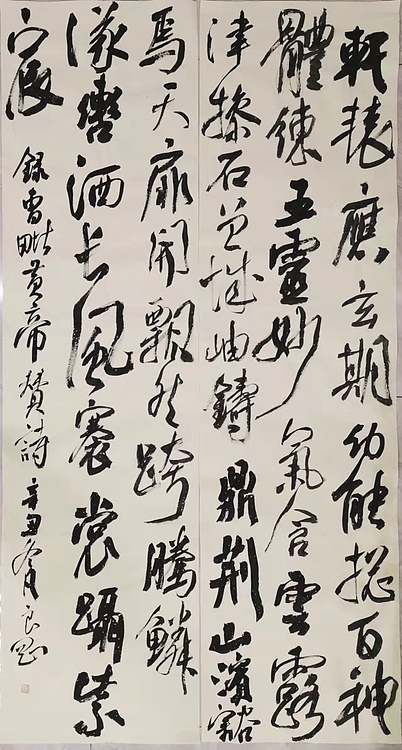 軒轅應玄期幼能揔百神
體練五靈妙氣含雲露
津掺石曾城岫鑄鼎荆山濱豁
焉天扉開飄然跨騰鱗
轡洒長風褰裳躡紫
宸
錄曹毗黄帝贊詩辛丑冬月良